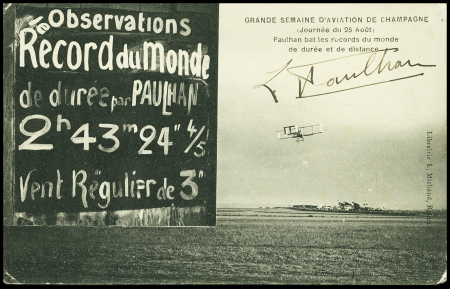 Observations
Record du Monde
de durée par PAULHAN
2h 43m 24" 4/5
Vent Régulier de 3"
GRANDE SEMAINE D'AVIATION DE CHAMPAGNE
(Journée du 25 Août)
Paulhan bat les records du monde
de durée et de distance
L. Paulhan
Librairie L. Michaud,